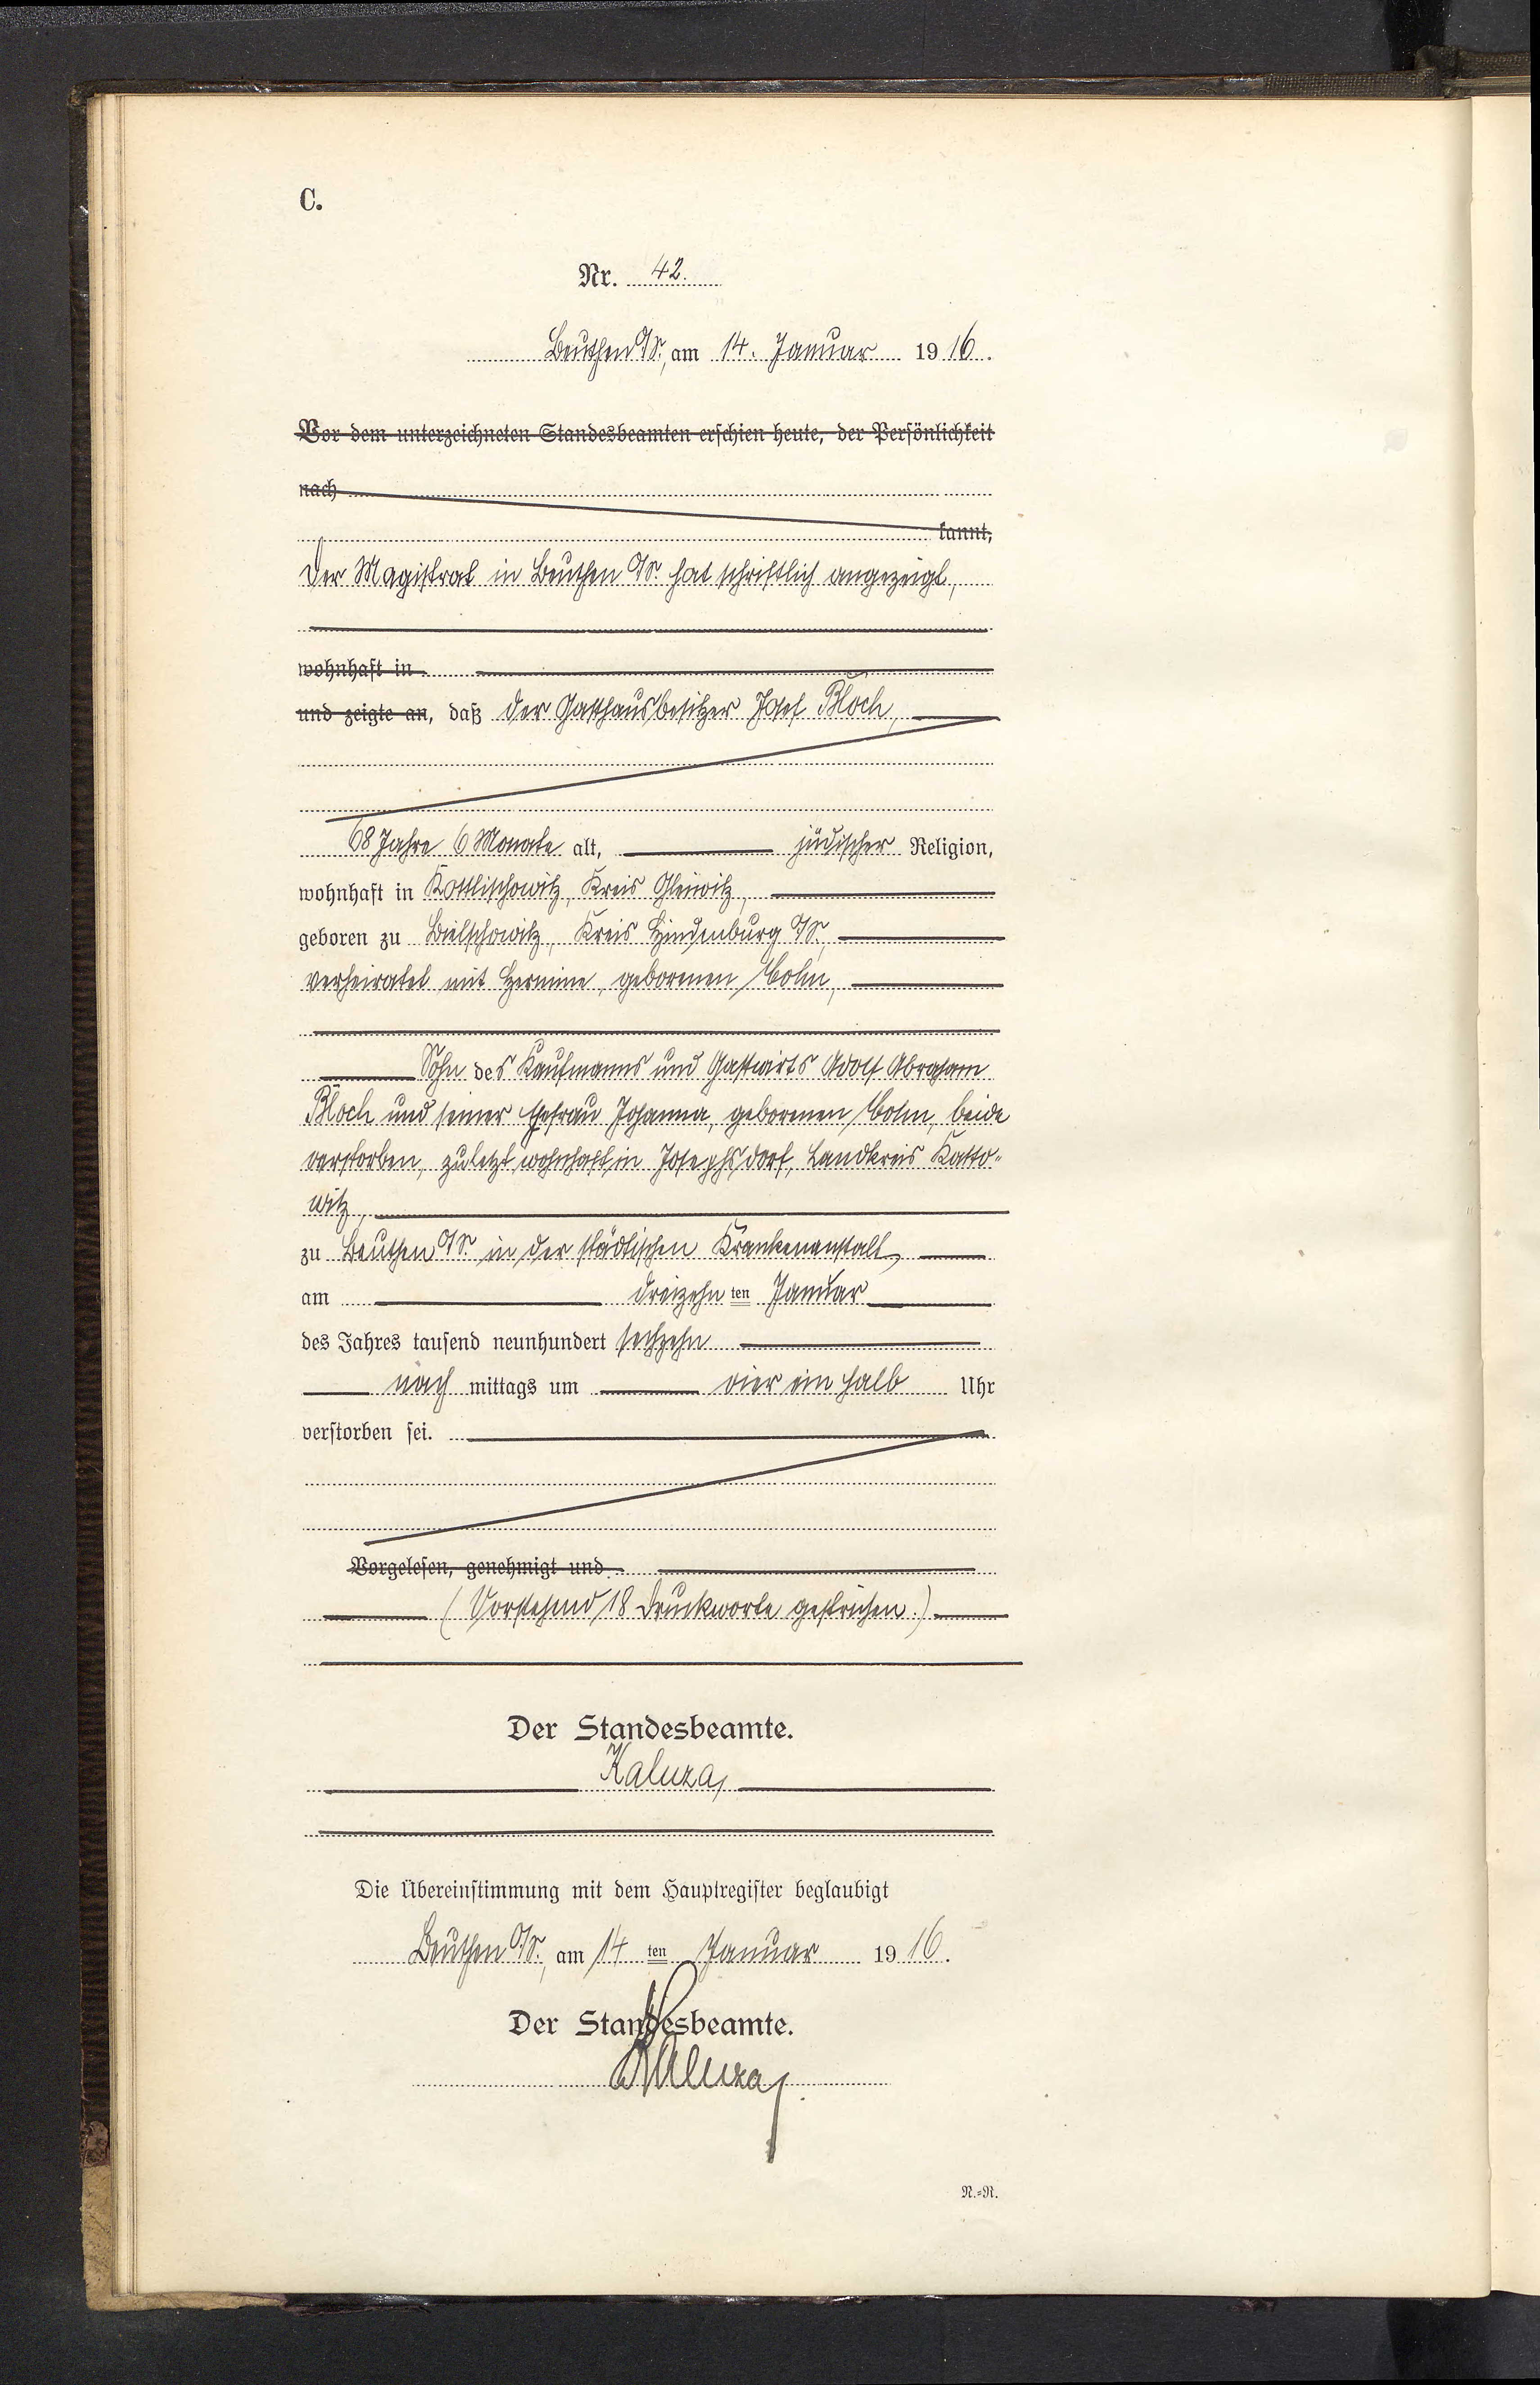 C.
Nr. 42.
Beuthen O/S., am 14. Januar 1916.
Vor dem unterzeichneten Standesbeamten erschien heute, der Persönlichkeit
nach
kannt,
Der Magistrat in Beuthen O/S. hat schriftlich angezeigt,
wohnhaft in
und zeigte an, daß der Gasthausbesitzer Josef Bloch,
68 Jahre 6 Monate alt, jüdischer Religion,
wohnhaft in Kottlischowitz, Kreis Gleiwitz,
geboren zu Bielschowitz, Kreis Hindenburg O/S.,
verheiratet mit Hermine, geborenen Cohn,
Sohn des Kaufmanns und Gastwirts Adolf Abraham
Bloch und seiner Ehefrau Johanna, geborenen Cohn, beide
verstorben, zuletzt wohnhaft in Josephsdorf, Landkreis Katto-
witz,
zu Beuthen O/S. in der städtischen Krankenanstalt,
am dreizehn ten Januar
des Jahres tausend neunhundert sechzehn
nach mittags um vier ein halb Uhr
verstorben sei.
Vorgelesen, genehmigt und
(Vorstehend 18 Druckworte gestrichen.)
Der Standesbeamte.
Kaluza
Die Übereinstimmung mit dem Hauptregister beglaubigt
Beuthen O/S., am 14 ten Januar 1916.
Der Standesbeamte.
Kaluza
N.=R.